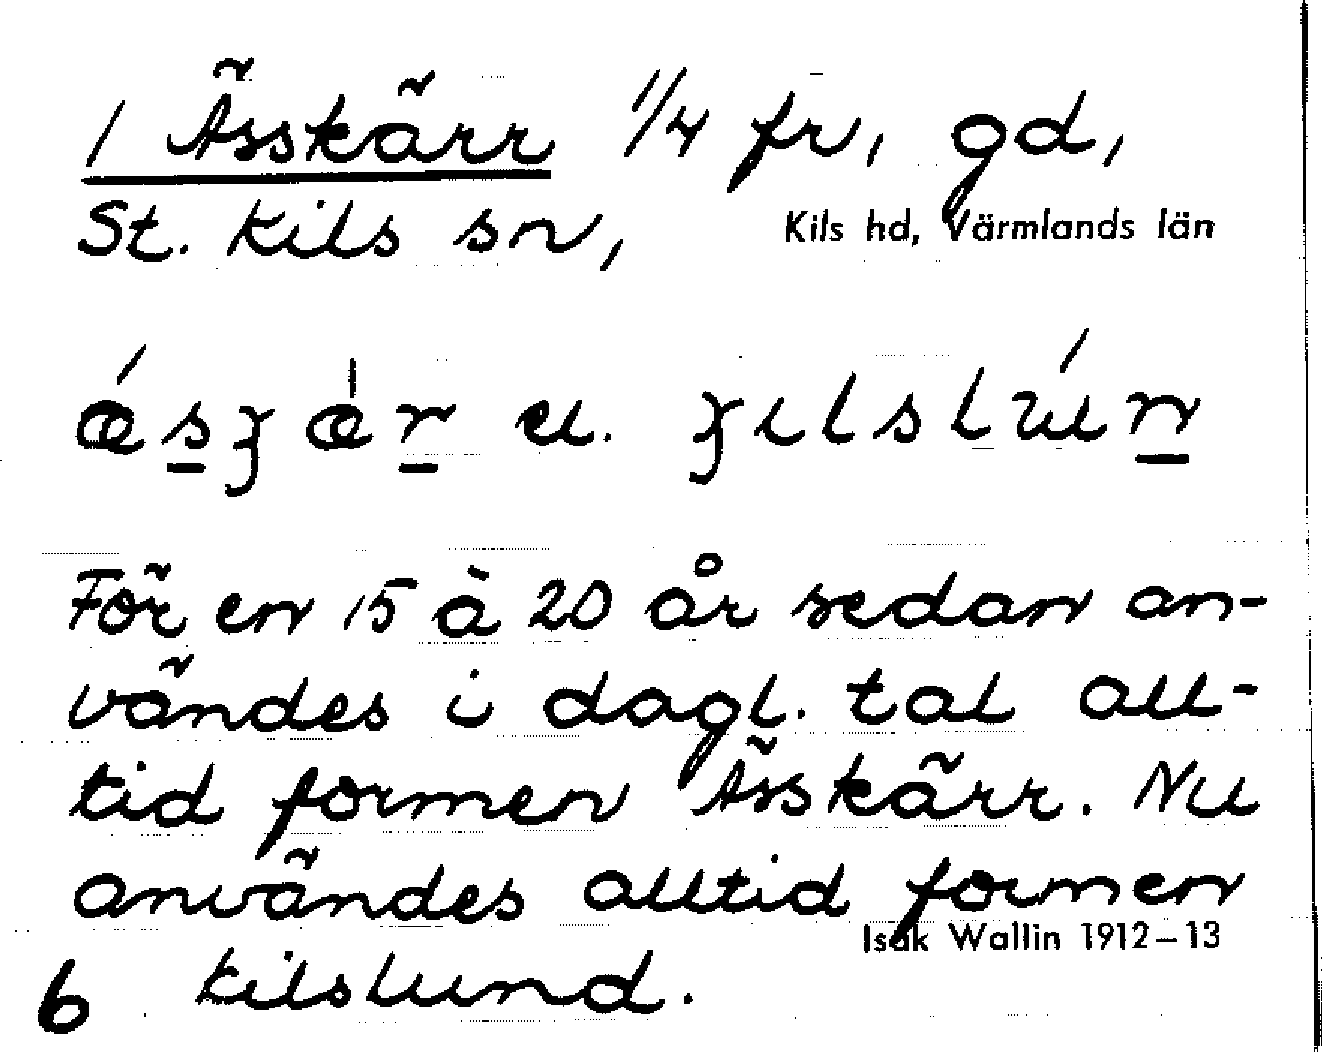 1 Ässkärr 1/4 fr, gd,
St. Kils sn, Kils hd, Värmlands län
u.
För en 15 à 20 år sedan an-
vändes i dagl. tal all-
tid formen Ässkärr. Nu
användes alltid formen
Isak Wallin 1912–13
6 Kilslund.